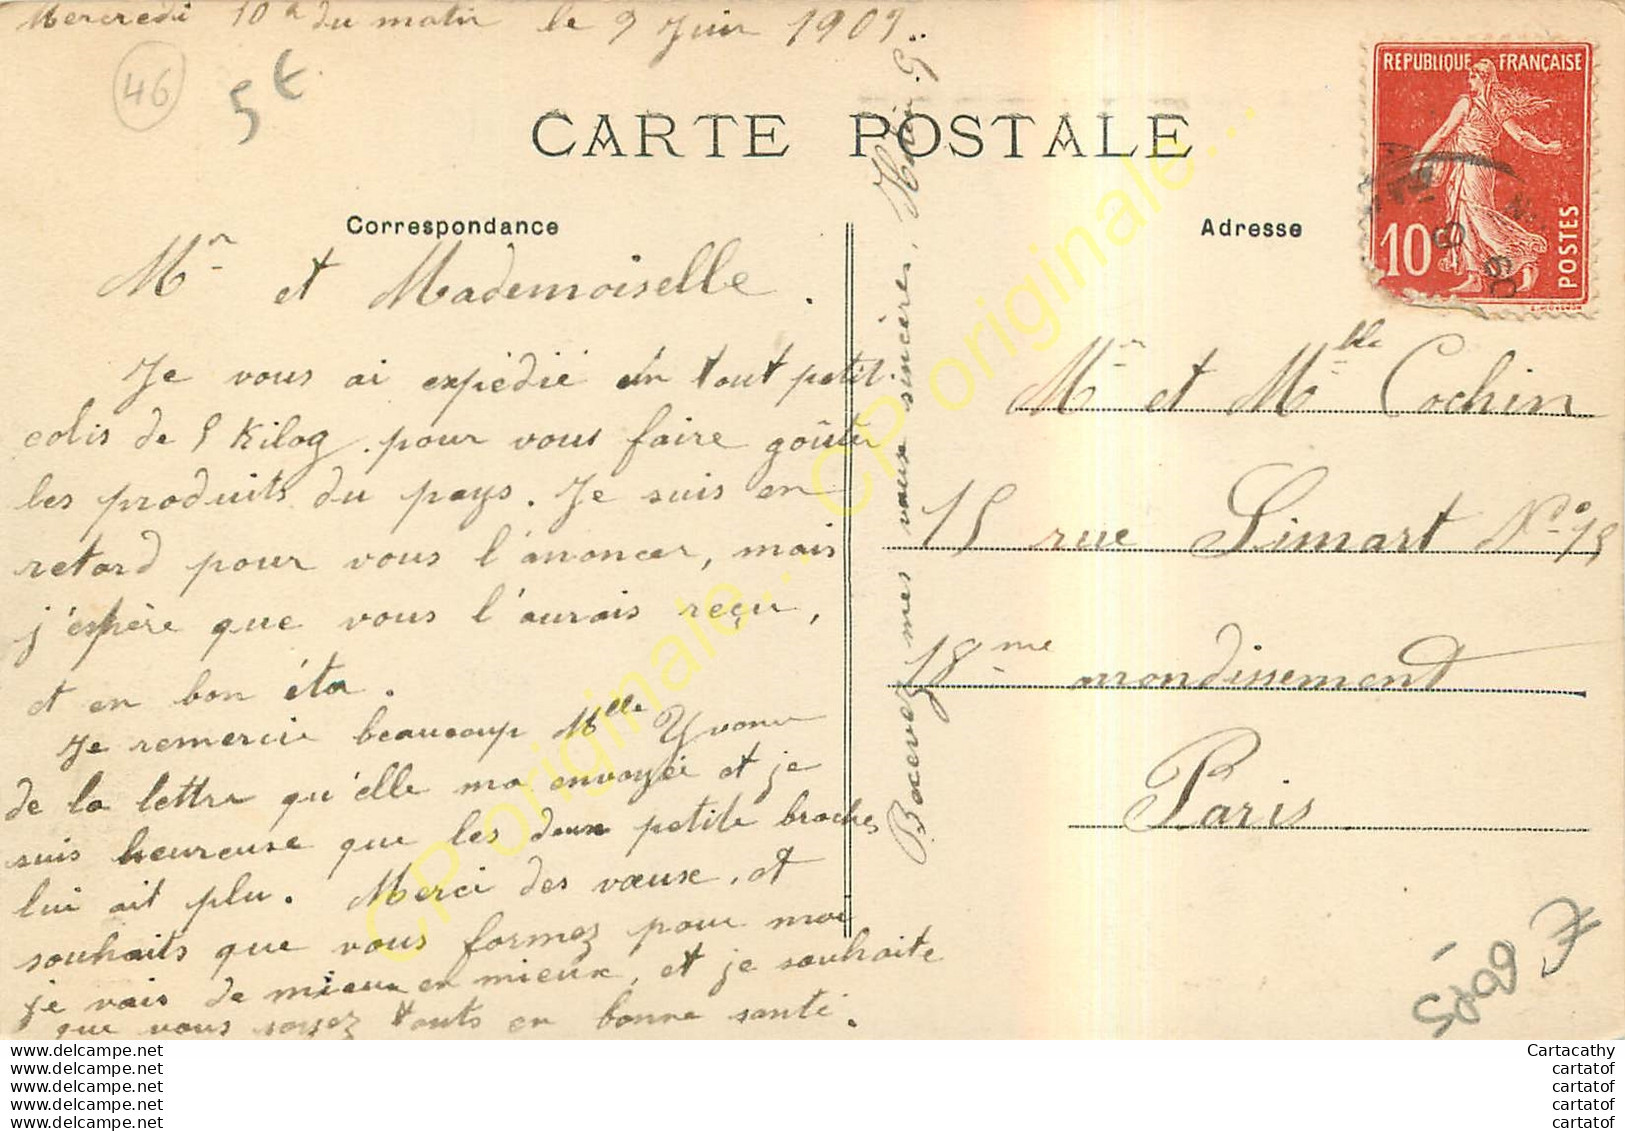 Mercredi 10 h du matin le 9 Juin 1909.
46
5€
CARTE POSTALE
REPUBLIQUE FRANÇAISE
10
POSTES
Correspondance
Adresse
Mr et Mademoiselle.
Je vous ai expédié un tout petit
colis de 5 Kilog. pour vous faire goûter
les produits du pays. Je suis en
retard pour vous l'anoncer, mais
j'espère que vous l'aurais reçu,
et en bon éta.
Je remercie beaucoup Mlle Yvonne
de la lettre qu'elle ma envoyée et je
suis heureuse que les deux petite broches
lui ait plu. Merci des vœux, et
souhaits que vous formez pour moi
je vais de mieux en mieux, et je souhaite
que vous soyez touts en bonne santé.
Recevez mes vœux sincères,
Mr et Mlle Cochin
15 rue Simart No 15
18me arrondissement
Paris
CP originale... CP originale... CP originale...
www.delcampe.net
www.delcampe.net
www.delcampe.net
www.delcampe.net
www.delcampe.net
Cartacathy
cartatof
cartatof
cartatof
cartatof